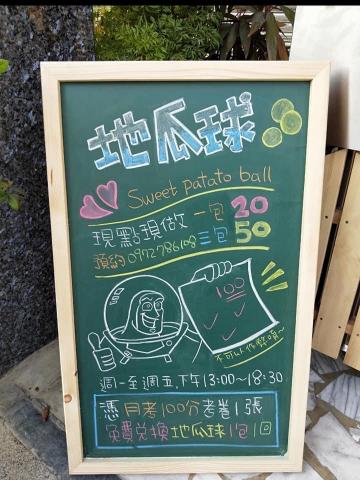 地瓜球
Sweet patato ball
現點現做 一包 20
預約 0972786108 三包 50
100
不可以作弊唷~
週一至週五,下午13:00~18:30
憑月考100分考卷1張
免費兌換地瓜球1包1回